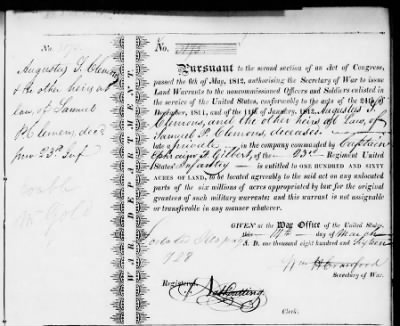 No.
Augustus F. Clemons
& the other heirs at
law, of Samuel
P. Clemens, dec'd
23rd Inf
WAR DEPARTMENT
No.
Pursuant to the second section of an Act of Congress,
passed the 6th of May, 1812, authorising the Secretary of War to issue
Land Warrants to the noncommissioned Officers and Soldiers enlisted
in the service of the United States, conformably to the acts of the 24th of
December, 1811, and of the 11th of January, 1812, Augustus F.
Clemons, and the other heirs at Law, of
Samuel P. Clemons, deceased
late a private in the company commanded by Captain
Ephraim F. Gilbert, of the 23rd Regiment United
States' Infantry is entitled to ONE HUNDRED AND SIXTY
ACRES OF LAND, to be located agreeably to the said act on any unlocated
parts of the six millions of acres appropriated by law for the original
grantees of such military warrants; and this warrant is not assignable
or transferable in any manner whatever.
GIVEN at the War Office of the United States,
this day of March
A. D. one thousand eight hundred and sixteen
Located
928
Wm H Crawford
Secretary of War.
Registered,
Clerk.